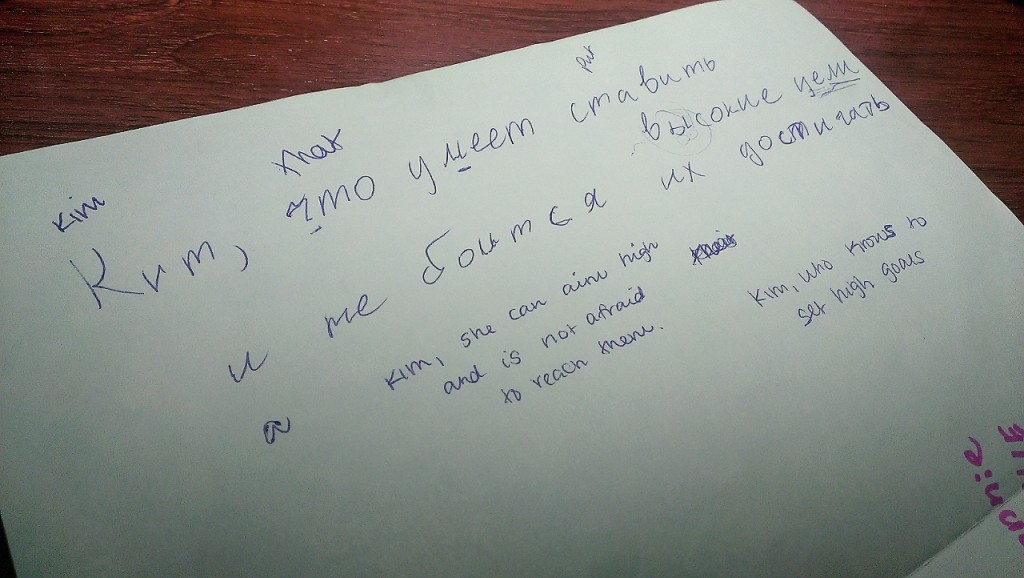 Kim
that
put
Ким, что умеет ставить
высокие цели
и не боится их достигать
a
Kim, she can aim high
and is not afraid
to reach them.
Kim, who knows to
set high goals